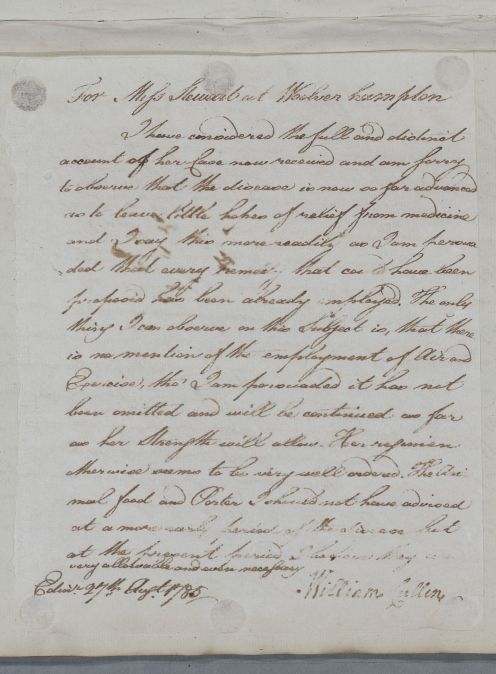 For Miss Stewart at Wolverhampton
I have considered the full and distinct
account of her Case now received and am sorry
to observe that the disease is now so far advanced
as to leave little hopes of relief from medicine
and I say this more readily as I am perswa
ded that every remedy that could have been
proposed has been already employed. The only
thing I can observe on this Subject is, that there
is no mention of the employment of Air and
Exercise, tho' I am perswaded it has not
been omitted and will be continued as far
as her Strength will allow. Her regimen
otherwise seems to be very well ordered. The Ani
mal food and Porter I should not have advised
at a more early period of the disease but
at the present period I believe they are
very allowable and even necessary
Edinr. 27th. Augt. 1785 William Cullen